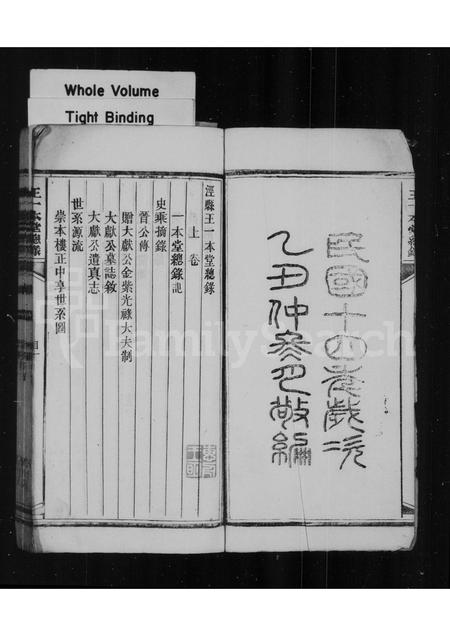 Whole Volume
Tight Binding
民國十四年歲次
乙丑仲冬月敬編
涇縣王一本堂總錄
上卷
一本堂總錄記
史乘摘錄
晉公傳
贈大獻公金紫光祿大夫制
大獻公墓誌敘
大獻公遺真志
世系源流
崇本樓正中享世系圖
王一本堂總錄
FamilySearch